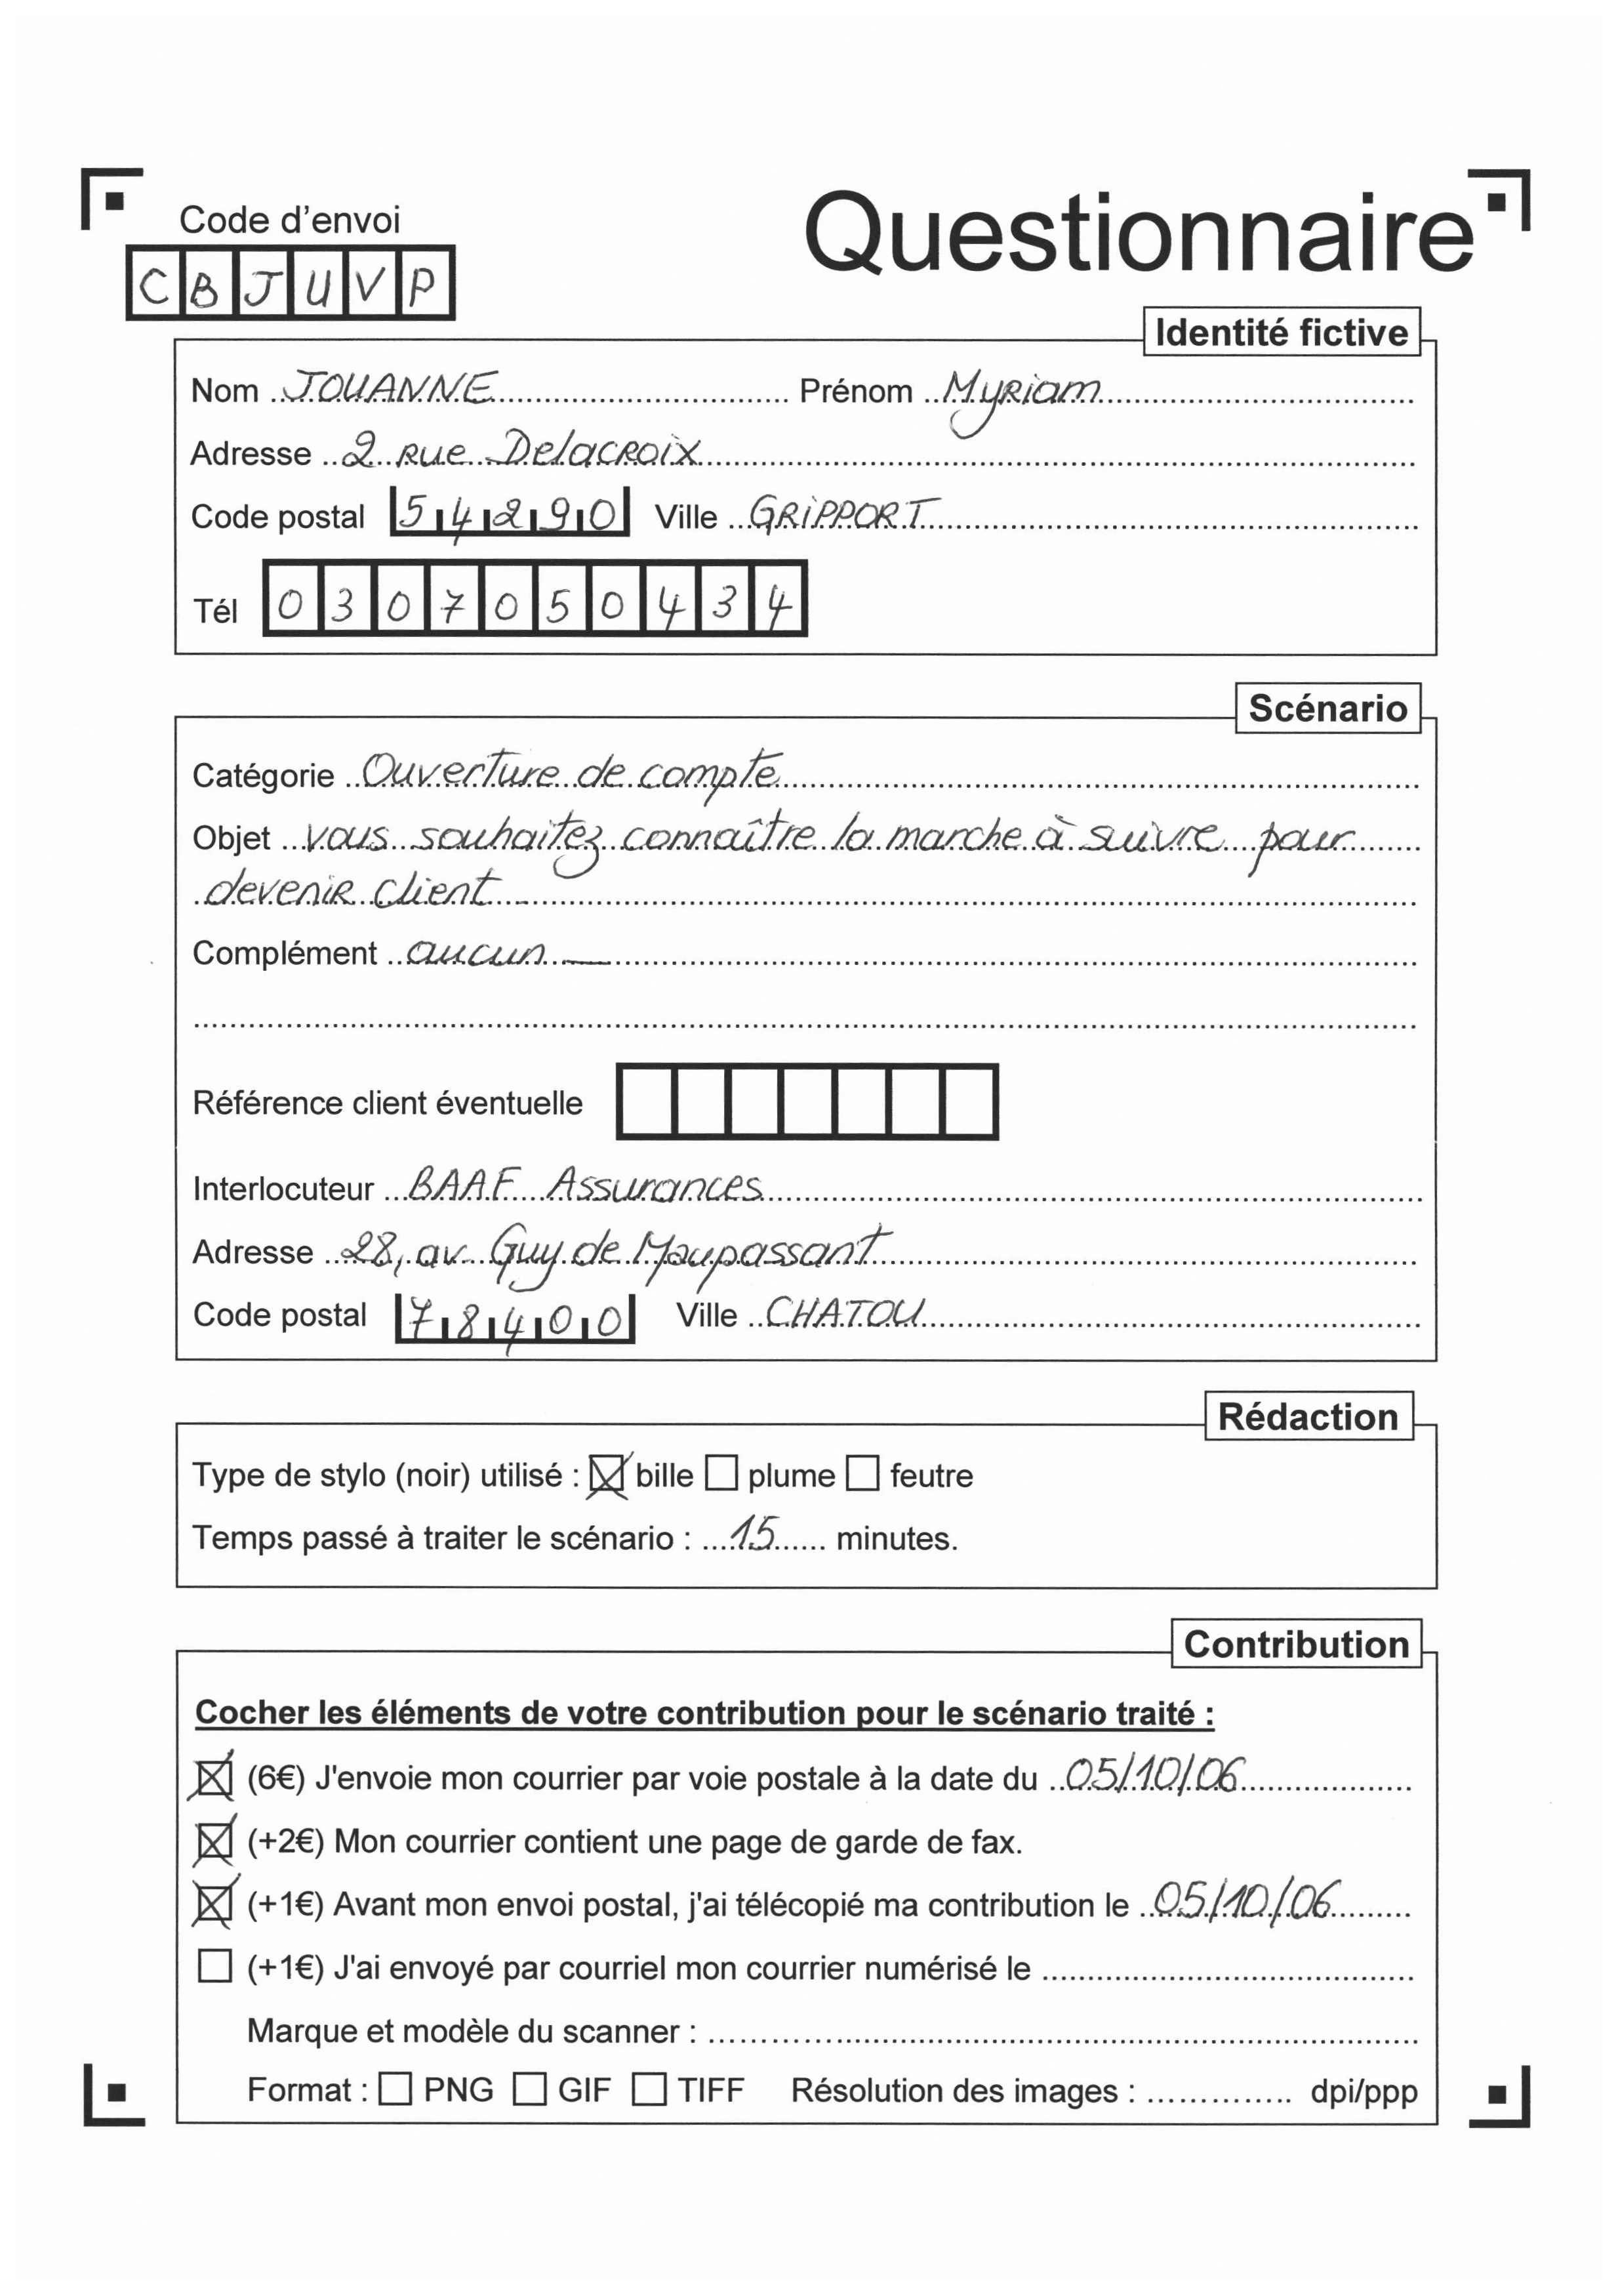 Code d'envoi
Questionnaire
CBJUVP
Identité fictive
Nom JOUANNE Prénom Myriam
Adresse 2 rue Delacroix
Code postal 54290 Ville GRIPPORT
Tél 0307050434
Scénario
Catégorie Ouverture de compte
Objet vous souhaitez connaître la marche à suivre pour
devenir client
Complément aucun —
Référence client éventuelle
Interlocuteur BAAF Assurances
Adresse 28, av Guy de Maupassant
Code postal 78400 Ville CHATOU
Rédaction
Type de stylo (noir) utilisé : ☒ bille ☐ plume ☐ feutre
Temps passé à traiter le scénario : 15 minutes.
Contribution
Cocher les éléments de votre contribution pour le scénario traité :
☒ (6€) J'envoie mon courrier par voie postale à la date du 05/10/06
☒ (+2€) Mon courrier contient une page de garde de fax.
☒ (+1€) Avant mon envoi postal, j'ai télécopié ma contribution le 05/10/06
☐ (+1€) J'ai envoyé par courriel mon courrier numérisé le
Marque et modèle du scanner :
Format : ☐ PNG ☐ GIF ☐ TIFF Résolution des images : dpi/ppp